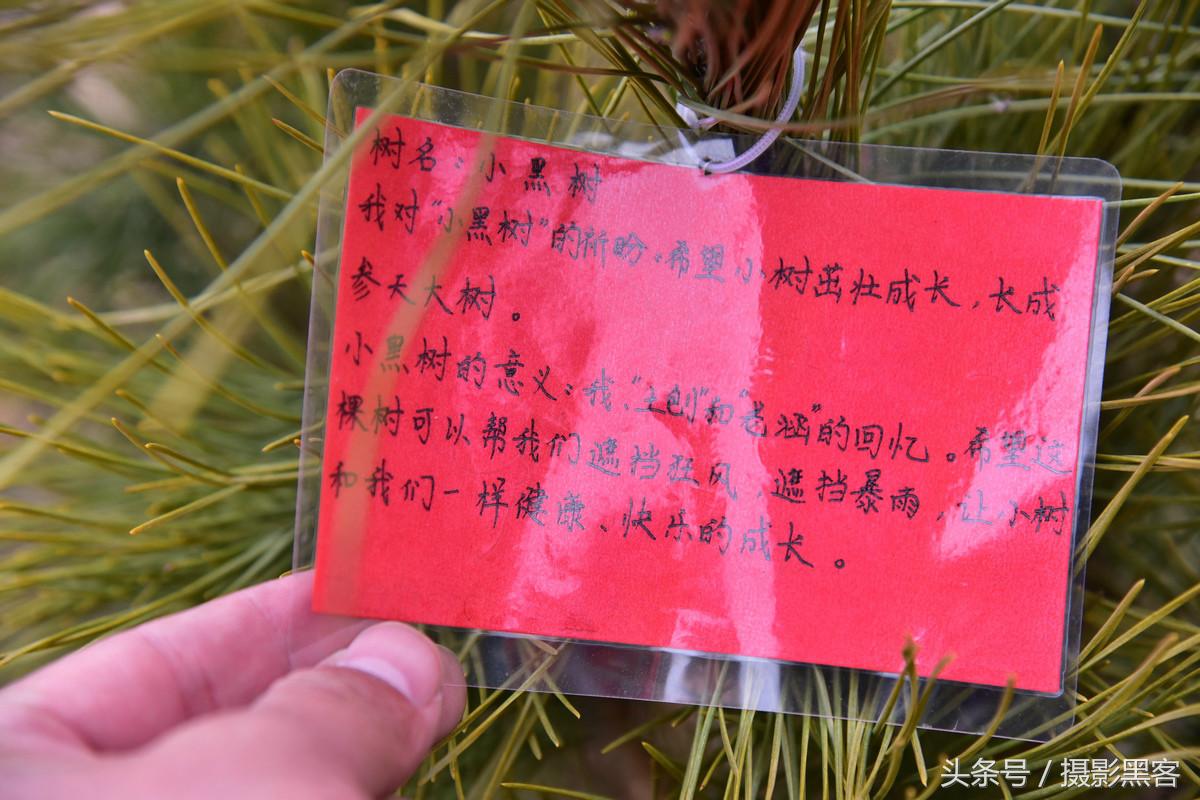 树名：小黑树
我对“小黑树”的祈盼：希望小树茁壮成长，长成
参天大树。
小黑树的意义：我、“土刨”和“老涵”的回忆。希望这
棵树可以帮我们遮挡狂风，遮挡暴雨，让小树
和我们一样健康、快乐的成长。
头条号 / 摄影黑客